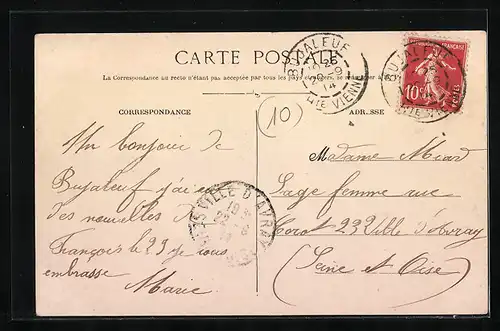 CARTE POSTALE
La Correspondance au recto n'étant pas acceptée par tous les pays
CORRESPONDANCE
ADRESSE
BUJALEUF
HTE VIENNE
BUJALEUF
10
(10)
Un bonjour de
Bujaleuf j'ai eu
des nouvelles de
François le 23 je vous
embrasse
Marie
VILLE D'AVRAY
Madame Miard
Sage femme rue
Corot 23 Ville d'Avray
(Seine et Oise)